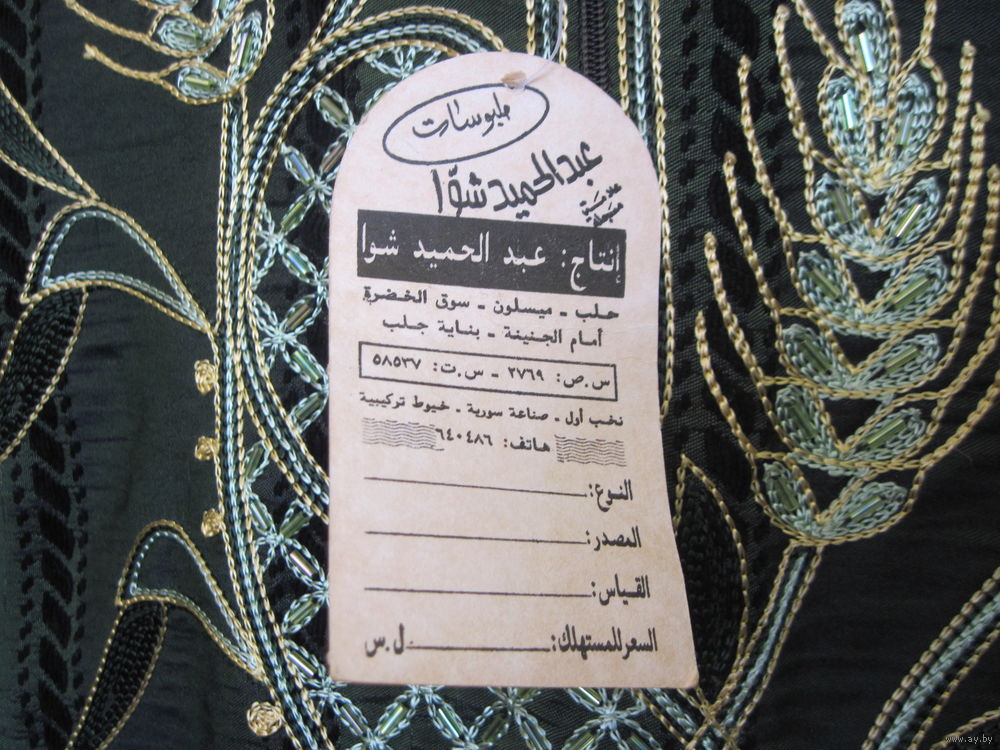 ملبوسات
عبدالحميد شوّا
إنتاج: عبد الحميد شوا
حلب ـ ميسلون ـ سوق الخضرة
أمام الجنينة ـ بناية جلب
س.ص: ٢٧٦٩ ـ س.ت: ٥٨٥٣٧
نخب أول ـ صناعة سورية ـ خيوط تركيبية
هاتف: ٦٤٠٤٨٦
النوع:
المصدر:
القياس:
السعر للمستهلك: ل.س
www.ay.by